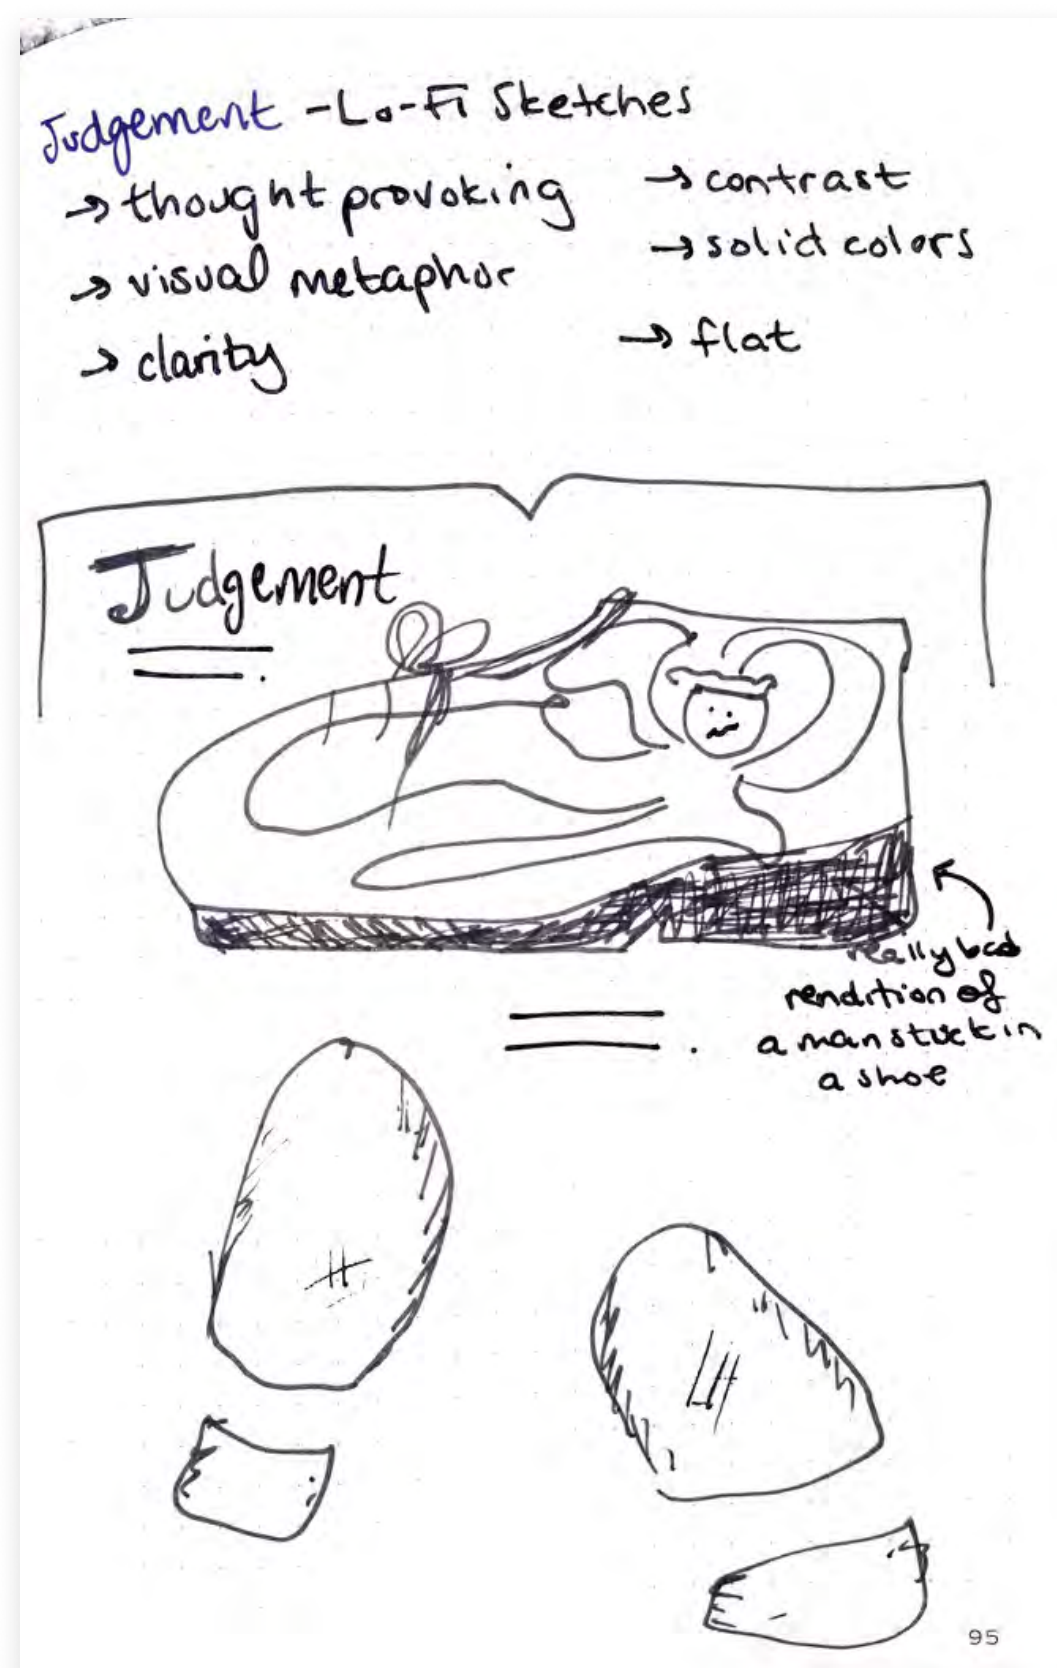 Judgement - Lo-Fi Sketches
→ thought provoking
→ visual metaphor
→ clarity
→ contrast
→ solid colors
→ flat
Judgement
really bad
rendition of
a man stuck in
a shoe
95